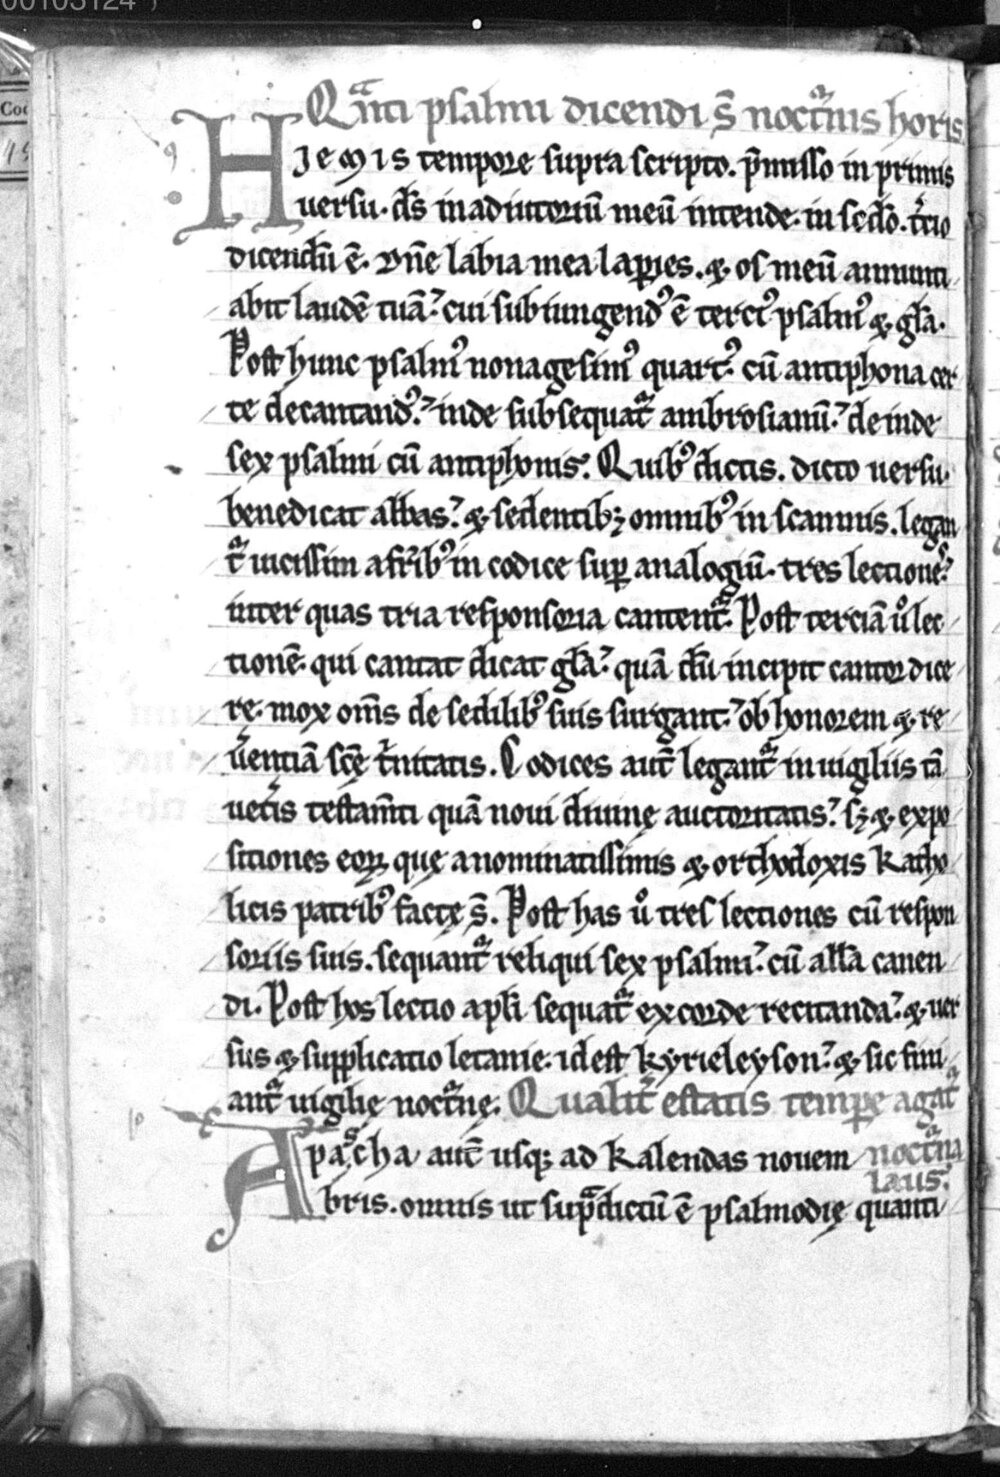 00103124
Coc
Qᷓnti psalmi dicendi s̄ noctᷓnis horis.
HJEMIS tempore supra scripto. p̄misso in primis
uersu. d̄s in adiutoriū meū intende. in secd̄o. t̄cio
dicendū ē. Dn̄e labia mea lap̄ies. ⁊ os meū annunti
abit laudē tuā. cui subiungendꝰ ē terciꝰ psalmꝰ ⁊ gl̄a.
Post hunc psalmꝰ nonagesimꝰ quartꝰ. cū antiphona cer
te decantandꝰ. inde subsequatᷓ ambrosianū. deinde
sex psalmi cū antiphonis. Quibꝰ dictis. dicto uersu.
benedicat abbas. ⁊ sedentibꝫ omnibꝰ in scamnis. legan
tᷓ uicissim a fr̄ibꝰ in codice suꝑ analogiū. tres lectiones.
inter quas tria responsoria cantentᷓ. Post terciā ů lec
tionē. qui cantat dicat gl̄a. quā dū incipit cantor dice
re. mox om̄s de sedilibꝰ suis surgant. ob honorem ⁊ re
u̅entiā sc̄ę t̄nitatis. Codices aut̄ legantᷓ in uigiliis tā
uet̄is testam̄ti quā noui diuinę auctoritatis. sꝫ ⁊ expo
sitiones eoꝝ quę a nominatissimis ⁊ orthodoxis katho
licis patribꝰ factę s̄. Post has ů tres lectiones cū respon
soriis suis. sequantᷓ reliqui sex psalmi. cū all̄a canen
di. Post hos lectio apl̄i sequatᷓ ex corde recitanda. ⁊ uer
sus ⁊ supplicatio letanie. id est kyrieleyson. ⁊ sic fini
antᷓ uigilię noctᷓnę. Qualit̄ estatis temꝑe agatᷓ
A pascha aut̄ usqꝫ ad kalendas nouem noctᷓna
laus.
bris. omnis ut sup̄dictū ē psalmodię quanti